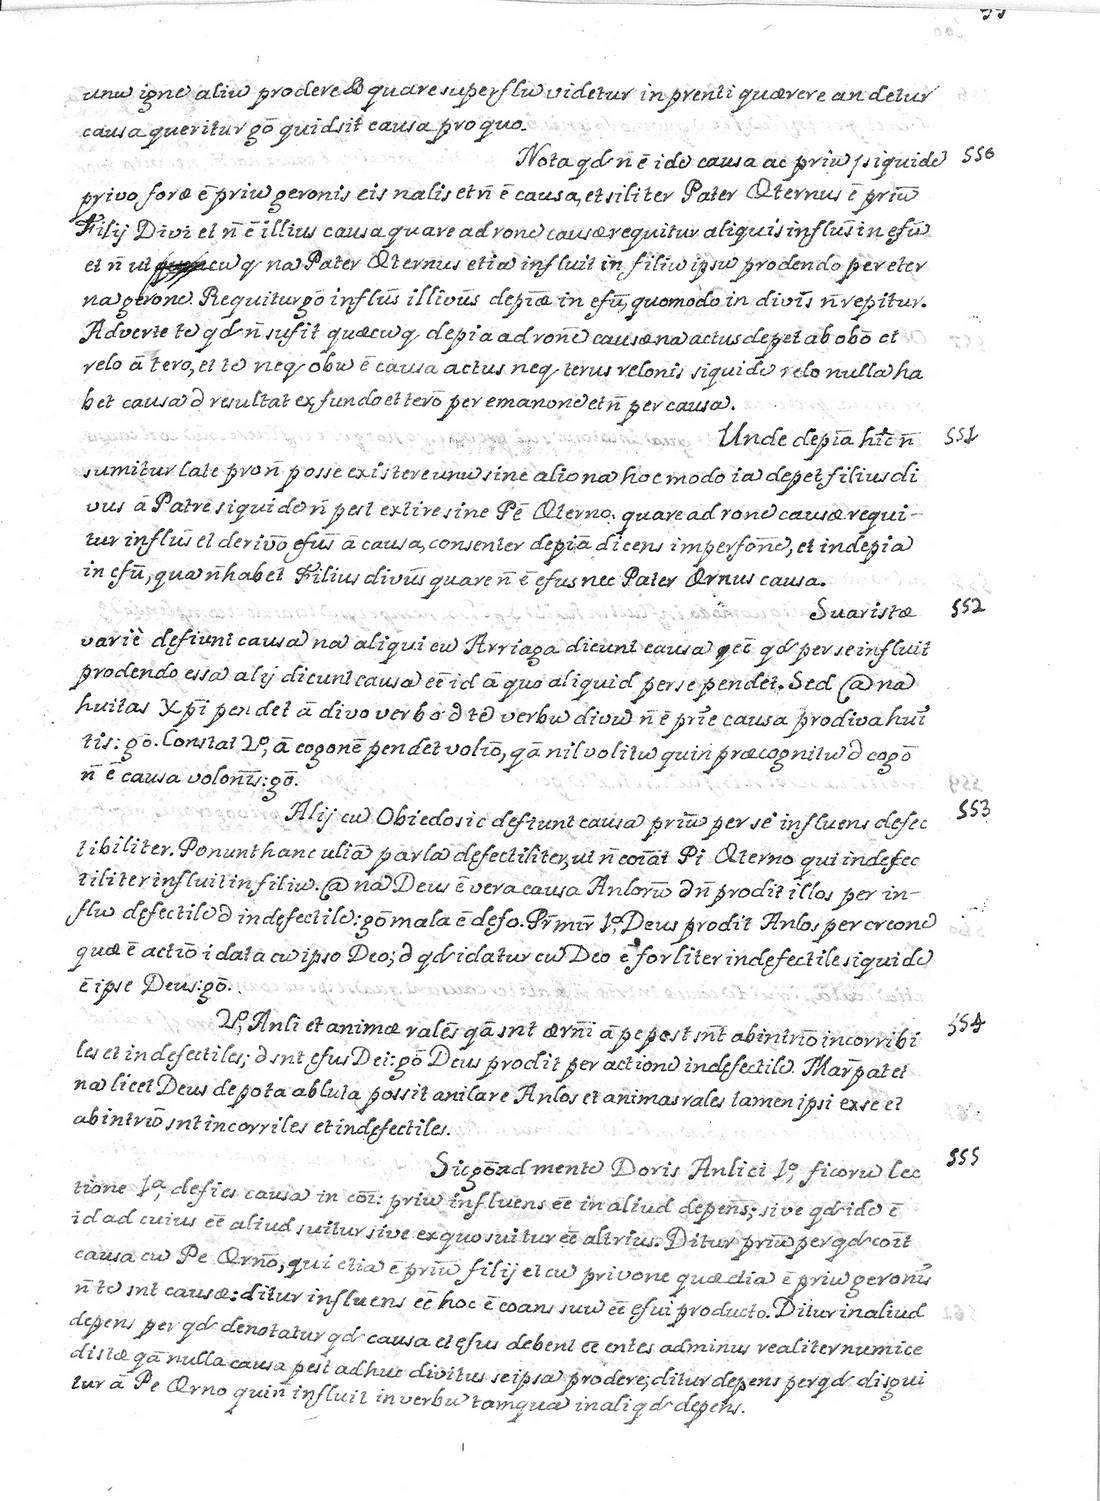 unū igne aliū prodere & quare superflū videtur in prēnti quærere an detur
causa queritur gō quid sit causa pro quo.
Nota qd n̄ ē idē causa ac priū, siquidē 550
privo formæ ē priū geronis eis nalis et n̄ ē causa, et siliter Pater Æternus ē priū
Filij Divi et n̄ ē illius causa quare ad ronē causæ requitur aliquis influs̄ in efū
et n̄ ut cūq na Pater Æternus etiā influit in filiū ipsū prodendo per eter
na geronē. Requitur gō influs̄ illivūs depiæ in efū, quomodo in divis n̄ repitur.
Adverte te qd n̄ sufit quæcūq depia ad ronē causæ na actus depet ab obō et
relo ā tero, et tē neq obū ē causa actus neq terus relonis siquidē relo nulla ha
bet causā ∂ resultat ex fundo et terō per emanonē et n̄ per causā.
Unde depiā hic n̄ 551
sumitur late pro n̄ posse existere unū sine alio na hoc modo iā depet filius di
vus ā Patre siquidē n̄ pest extire sine Pē Æterno, quare ad ronē causæ requi-
tur influs̄ et derivō efus̄ ā causa, consenter depiā dicens imperfonē, et indepia
in efū, quā n̄ habet Filius divūs quare n̄ ē efus nec Pater Ærnus causa.
Suaristæ 552
variè defiunt causā na aliqui cū Arriaga dicunt causā eē qd per se influit
prodendo essā alij dicunt causā eē id ā quo aliquid per se pendet. Sed @ na
huitas Xpi pendet ā divo verbo ∂ tē verbū divū n̄ ē prīe causa prodiva hui
tis: gō. Constat 2º, ā cogonē pendet volīo, qā nil volitū quin præcognitū ∂ cogō
n̄ ē causa volonis̄: gō.
Alij cū Obiedo sic defiunt causā priū per se influens defec 553
tibiliter. Ponunt hanc uliā parlā defectiliter, ut n̄ coīat Pī Æterno qui indefec
tiliter influit in filiū. @ na Deus ē vera causa Anlorū ∂ n̄ prodit illos per in-
flū defectilē ∂ indefectilē: gō mala ē defo. Pr̄ mir̄ 1º, Deus prodit Anlos per creonē
quæ ē actiō idata cū ipso Deo; ∂ qd idatur cū Deo ē forliter indefectile siquidē
ē ipse Deus: gō.
2º, Anli et animæ ralēs qā snt ærni ā pe post snt ab intrīo incorribi 554
les et indefectiles; ∂ snt efus Dei: gō Deus prodit per actionē indefectilē. Mar̄ patet
na licet Deus de pota abluta possit anilare Anlos et animas rales tamen ipsi ex se et
ab intriō snt incorriles et indefectiles.
Sic gō ad mentē Doris Anlici 1º, ficorū lec 555
tione 1ª, defies causā in coī: priū influens eē in aliud depens̄; sive qd idē ē
id ad cuius eē aliud suitur sive ex quo suitur eē altrius. Ditur priū per qd coīt
causa cū Pe Ærnō, qui etiā ē priū filij et cū privone quæ etiā ē priū geronis
n̄ tē snt causæ: ditur influens eē hoc ē coans suū eē efui producto. Ditur in aliud
depens per qd denotatur qd causa et efus debent eē entes adminus realiter numice
distæ qā nulla causa pest adhuc divitus se ipsā prodere; ditur depens per qd disgui
tur ā Pe Ærno qui n̄ influit in verbū tamquā in aliqd depens.